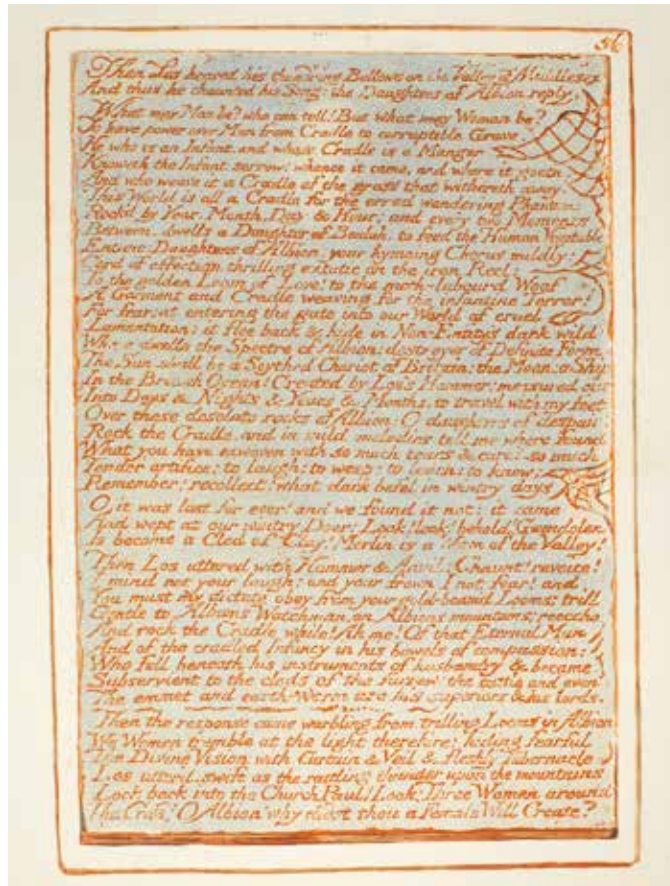 56
Then Los heaved his thund'ring Bellows on the Valley of Middlesex
And thus he chaunted his Song: the Daughters of Albion reply.
What may Man be? who can tell! But what may Woman be?
To have power over Man from Cradle to corruptible Grave.
He who is an Infant, and whose Cradle is a Manger
Knoweth the Infant sorrow: whence it came, and where it goeth:
And who weave it a Cradle of the grass that withereth away.
This World is all a Cradle for the erred wandering Phantom:
Rock'd by Year, Month, Day & Hour; and every two Moments
Between, dwells a Daughter of Beulah, to feed the Human Vegetable
Entune: Daughters of Albion, your hymning Chorus mildly!
Cord of affection thrilling extatic on the iron Reel:
To the golden Loom of Love! to the moth-labourd Woof
A Garment and Cradle weaving for the infantine Terror:
For fear; at entering the gate into our World of cruel
Lamentation: it flee back & hide in Non-Entitys dark wild
Where dwells the Spectre of Albion: destroyer of Definite Form.
The Sun shall be a Scythed Chariot of Britain: the Moon; a Ship
In the British Ocean! Created by Los's Hammer; measured out
Into Days & Nights & Years & Months, to travel with my feet
Over these desolate rocks of Albion: O daughters of despair!
Rock the Cradle, and in mild melodies tell me where found
What you have enwoven with so much tears & care? so much
Tender artifice: to laugh: to weep: to learn: to know;
Remember! recollect! what dark befel in wintry days
O it was lost for ever! and we found it not: it came
And wept at our wintry Door: Look! look! behold! Gwendolen
Is become a Clod of Clay! Merlin is a Worm of the Valley!
Then Los uttered with Hammer & Anvil: Chaunt! revoice!
I mind not your laugh: and your frown I not fear! and
You must my dictate obey from your gold-beam'd Looms; trill
Gentle to Albions Watchman, on Albions mountains; reeccho
And rock the Cradle while! Ah me! Of that Eternal Man
And of the cradled Infancy in his bowels of compassion:
Who fell beneath his instruments of husbandry & became
Subservient to the clods of the furrow! the cattle and even
The emmet and earth-Worm are his superiors & his lords.
Then the response came warbling from trilling Looms in Albion
We Women tremble at the light therefore: hiding fearful
The Divine Vision with Curtain & Veil & fleshly Tabernacle
Los utterd: swift as the rattling thunder upon the mountains
Look back into the Church Paul! Look! Three Women around
The Cross! O Albion why didst thou a Female Will Create?